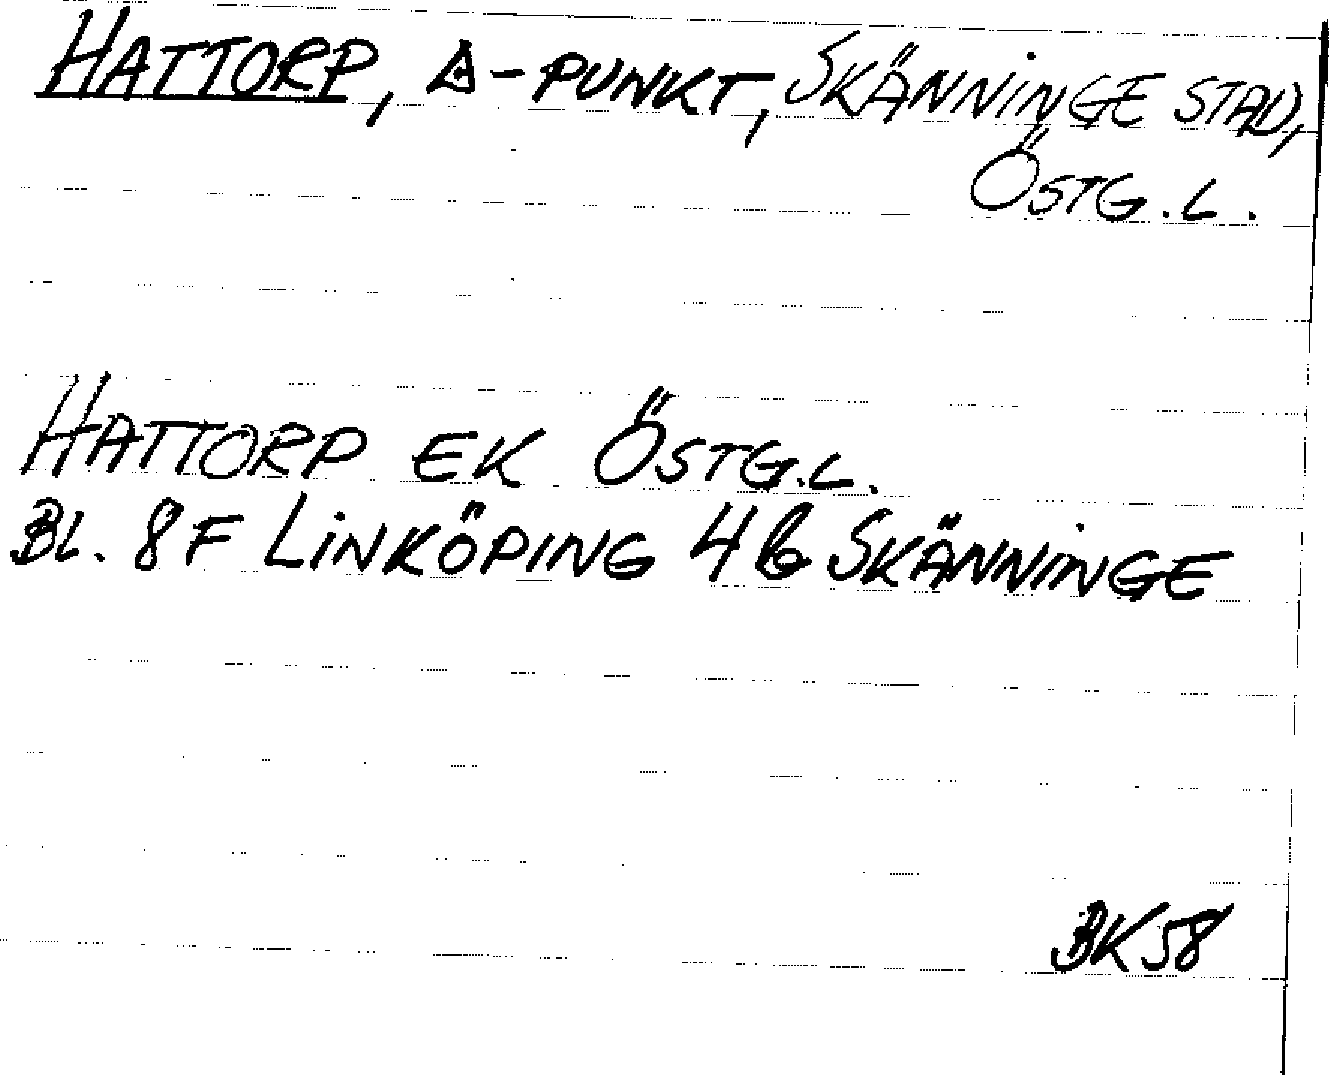 HATTORP, △-PUNKT, SKÄNNINGE STAD,
ÖSTG.L.
HATTORP EK ÖSTG.L.
BL. 8F LINKÖPING 4b SKÄNNINGE
BK58